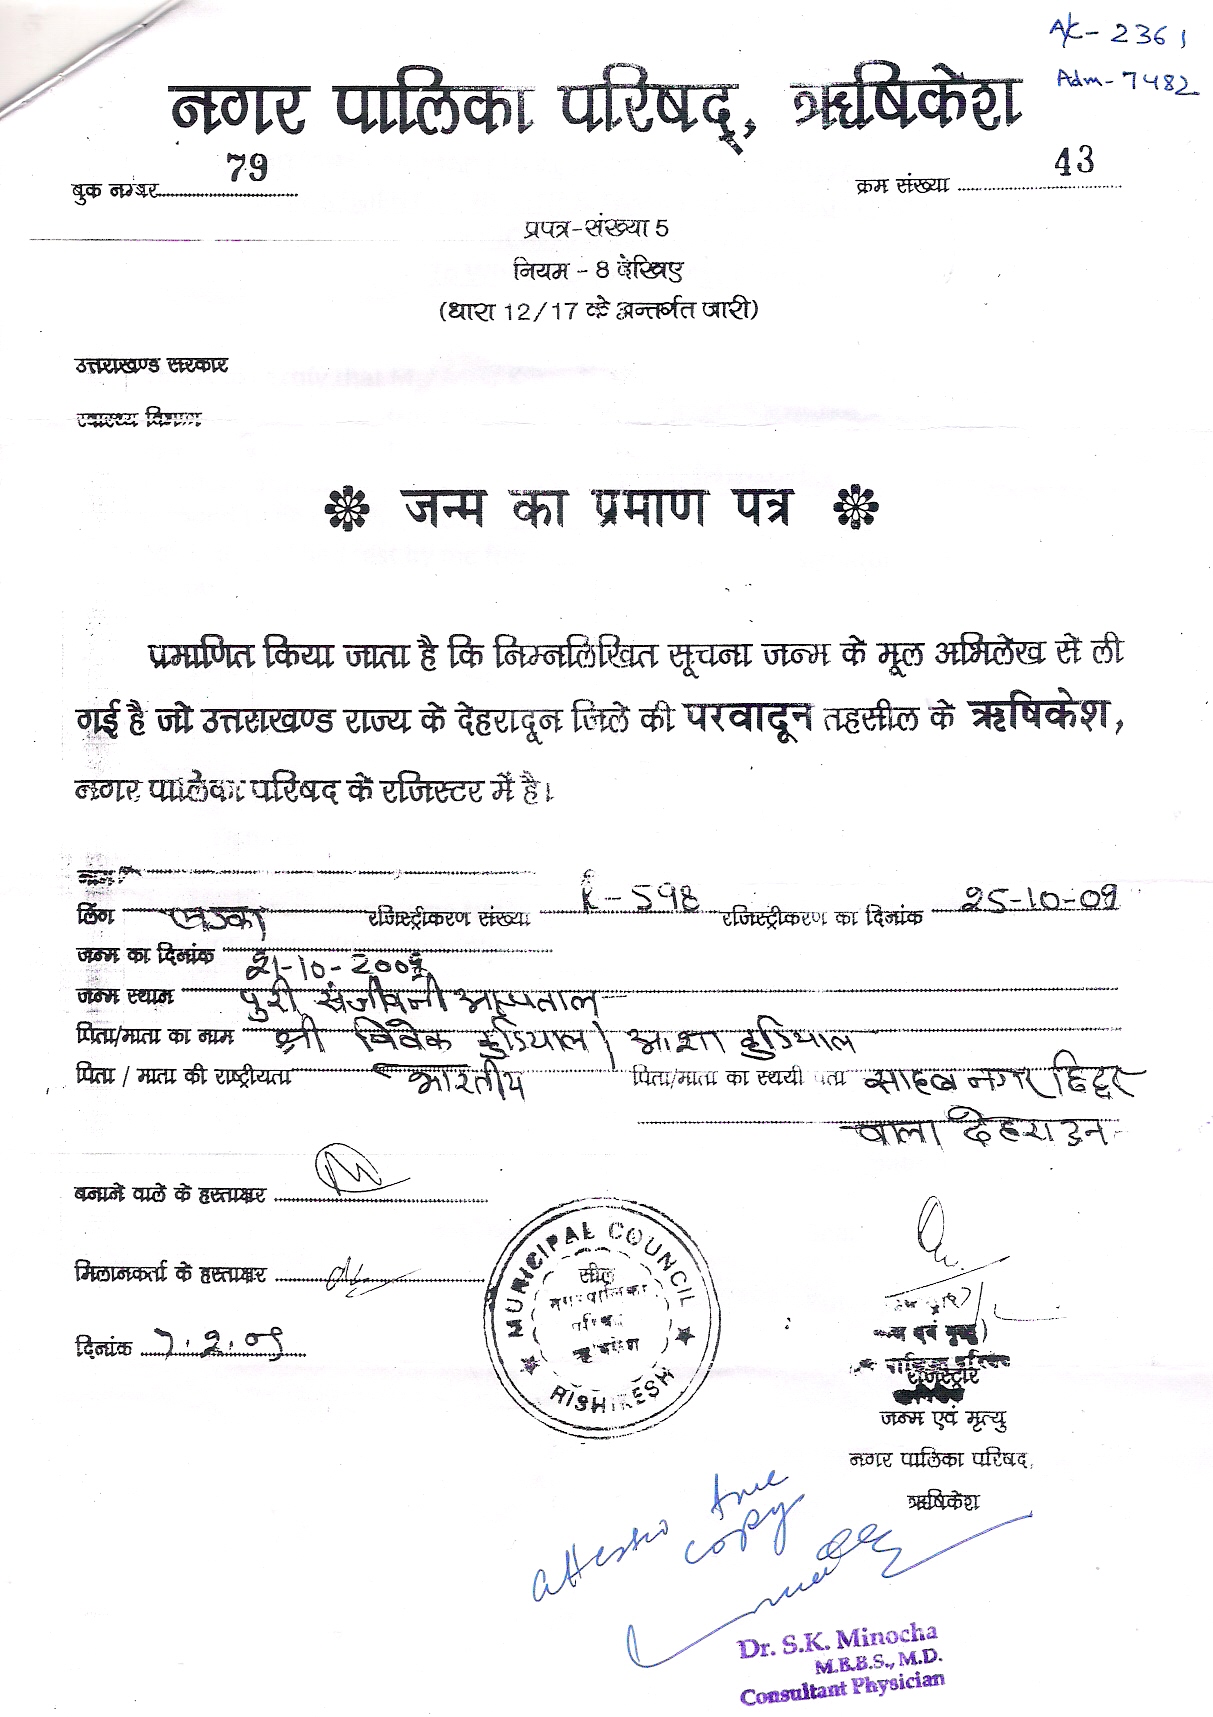 A/C - 2361
Adm - 7482
नगर पालिका परिषद्, ऋषिकेश
बुक नम्बर 79 क्रम संख्या 43
प्रपत्र-संख्या 5
नियम - 8 देखिए
(धारा 12/17 के अन्तर्गत जारी)
उत्तराखण्ड सरकार
स्वास्थ्य विभाग
जन्म का प्रमाण पत्र
प्रमाणित किया जाता है कि निम्नलिखित सूचना जन्म के मूल अभिलेख से ली
गई है जो उत्तराखण्ड राज्य के देहरादून जिले की परवादून तहसील के ऋषिकेश,
नगर पालिका परिषद के रजिस्टर में है।
नाम
लिंग लड़का रजिस्ट्रीकरण संख्या R-598 रजिस्ट्रीकरण का दिनांक 25-10-09
जन्म का दिनांक 21-10-2009
जन्म स्थान पुरी संजीवनी अस्पताल
पिता/माता का नाम श्री विवेक हुडियाल / आशा हुडियाल
पिता / माता की राष्ट्रीयता भारतीय पिता/माता का स्थयी पता साहब नगर छिद्दर
वाला देहरादून
बनाने वाले के हस्ताक्षर
मिलानकर्ता के हस्ताक्षर
दिनांक 7.2.09
MUNICIPAL COUNCIL
सील
नगरपालिका
परिषद
ऋषिकेश
RISHIKESH
रजिस्ट्रार
जन्म एवं मृत्यु
नगर पालिका परिषद,
ऋषिकेश
true
attested copy
Dr. S.K. Minocha
M.B.B.S., M.D.
Consultant Physician